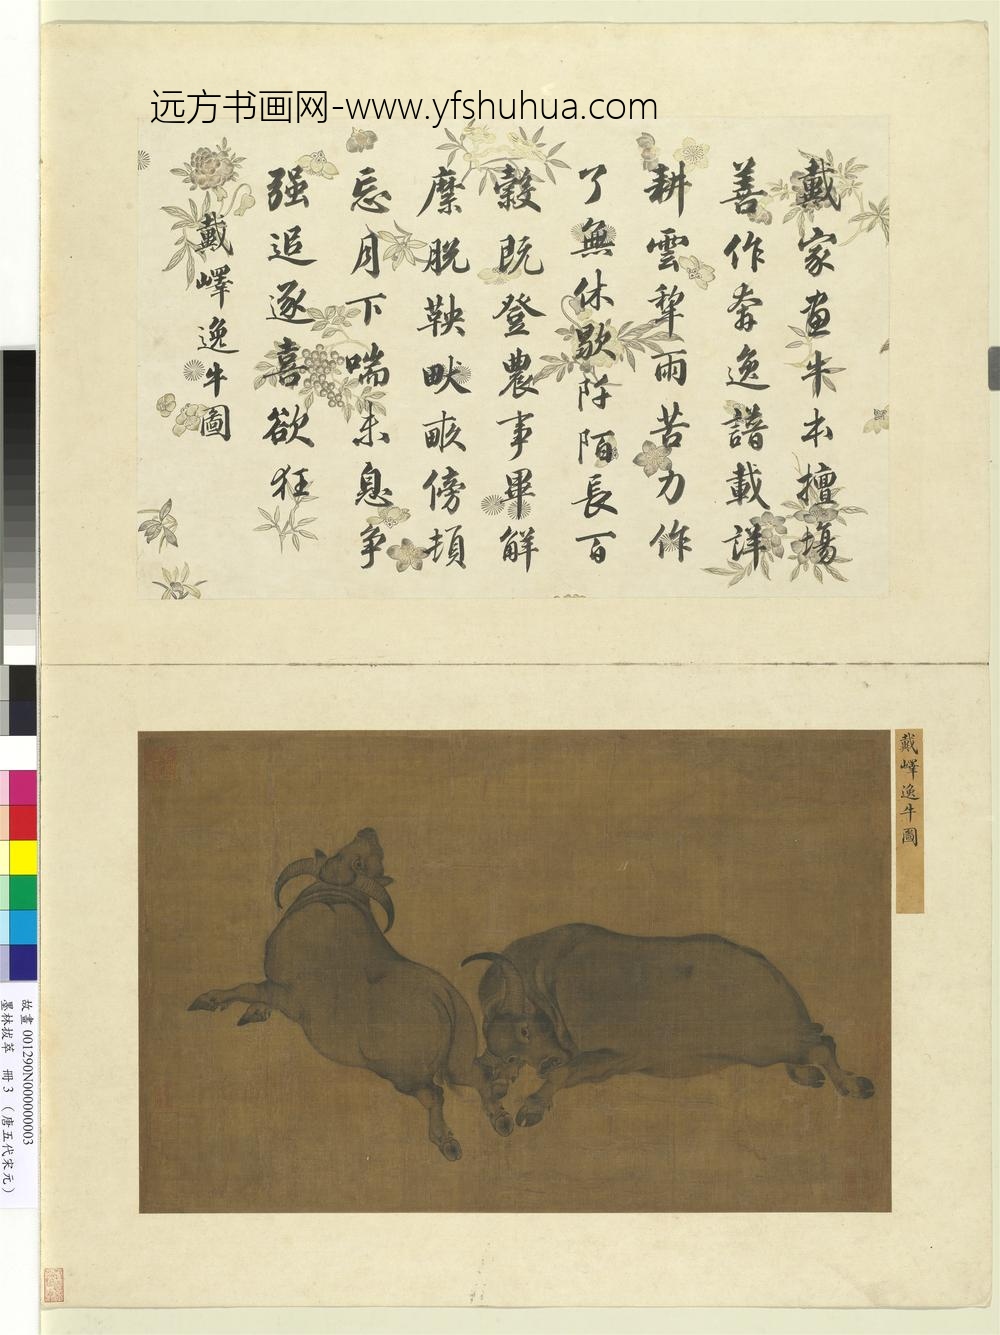 远方书画网-www.yfshuhua.com
戴家畫牛本擅場
善作奔逸譜載詳
耕雲犂雨苦力作
了無休歇阡陌長百
穀既登農事畢解
縻脱鞅畎畝傍頓
忘月下喘未息爭
强追逐喜欲狂
戴嶧逸牛圖
戴嶧逸牛圖
故畫 001290N000000003
墨林拔萃　冊 3 （唐五代宋元）